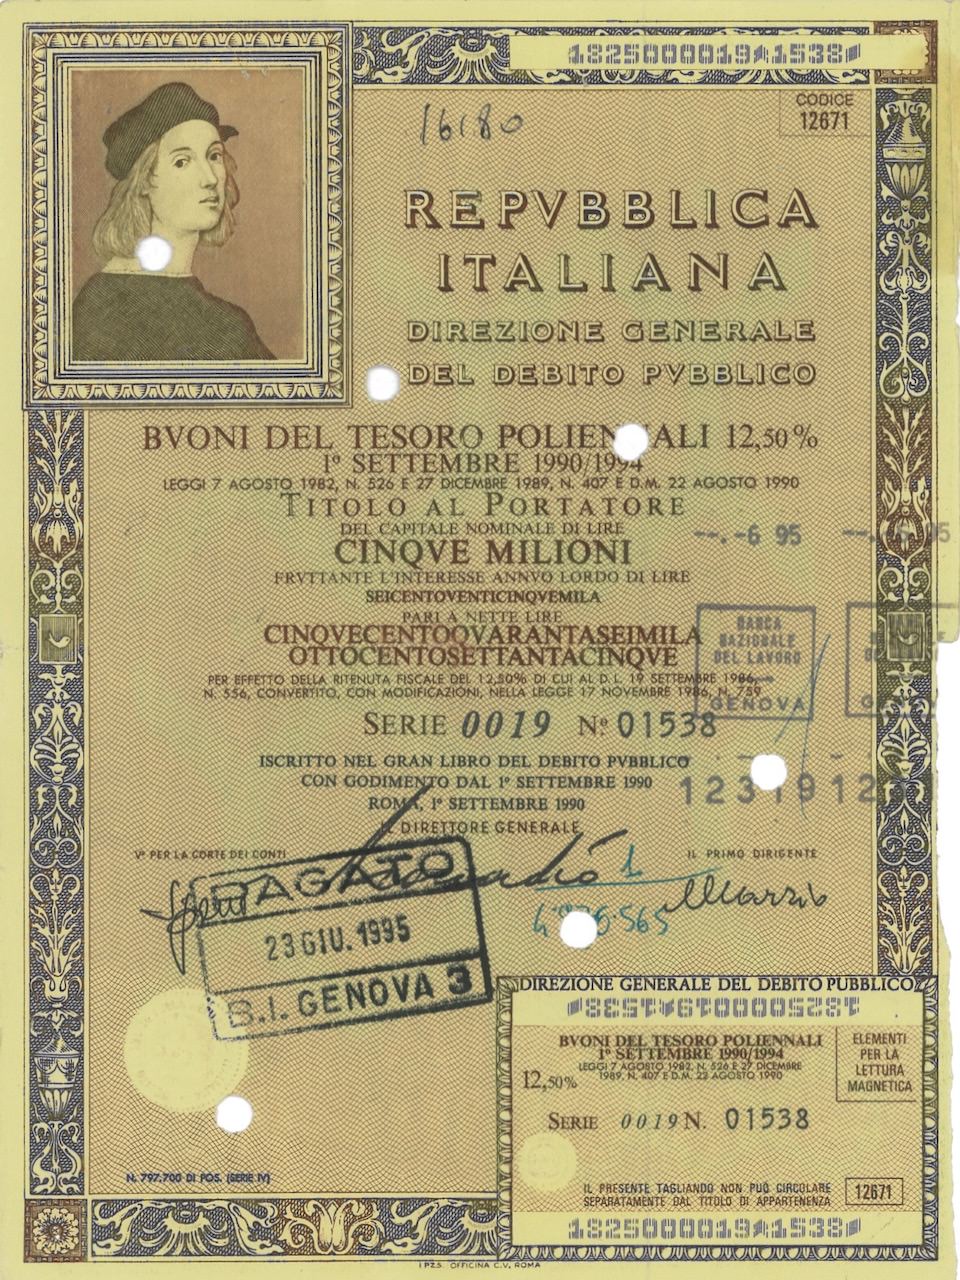 1825000019415381
CODICE
12671
16180
REPVBBLICA
ITALIANA
DIREZIONE GENERALE
DEL DEBITO PVBBLICO
BVONI DEL TESORO POLIENNALI 12,50%
1º SETTEMBRE 1990/1994
LEGGI 7 AGOSTO 1982, N. 526 E 27 DICEMBRE 1989, N. 407 E D.M. 22 AGOSTO 1990
TITOLO AL PORTATORE
DEL CAPITALE NOMINALE DI LIRE
CINQVE MILIONI
FRVTTANTE L'INTERESSE ANNVO LORDO DI LIRE
SEICENTOVENTICINQVEMILA
PARI A NETTE LIRE
CINQVECENTOQVARANTASEIMILA
OTTOCENTOSETTANTACINQVE
PER EFFETTO DELLA RITENUTA FISCALE DEL 12,50% DI CUI AL D.L. 19 SETTEMBRE 1986,
N. 556, CONVERTITO, CON MODIFICAZIONI, NELLA LEGGE 17 NOVEMBRE 1986, N. 759
SERIE 0019 Nº 01538
--.-6 95
BANCA
NAZIONALE
DEL LAVORO
GENOVA
ISCRITTO NEL GRAN LIBRO DEL DEBITO PVBBLICO
CON GODIMENTO DAL 1º SETTEMBRE 1990
ROMA, 1º SETTEMBRE 1990
IL DIRETTORE GENERALE
Vº PER LA CORTE DEI CONTI
IL PRIMO DIRIGENTE
PAGATO
23 GIU. 1995
B.I. GENOVA 3
DIREZIONE GENERALE DEL DEBITO PUBBLICO
1825000019415381
BVONI DEL TESORO POLIENNALI
1º SETTEMBRE 1990/1994
LEGGI 7 AGOSTO 1982, N. 526 E 27 DICEMBRE
1989, N. 407 E D.M. 22 AGOSTO 1990
12,50%
SERIE 0019 N. 01538
ELEMENTI
PER LA
LETTURA
MAGNETICA
IL PRESENTE TAGLIANDO NON PUÒ CIRCOLARE
SEPARATAMENTE DAL TITOLO DI APPARTENENZA
12671
1825000019415381
N. 797.700 DI POS. (SERIE IV)
I.P.Z.S. OFFICINA C.V. ROMA